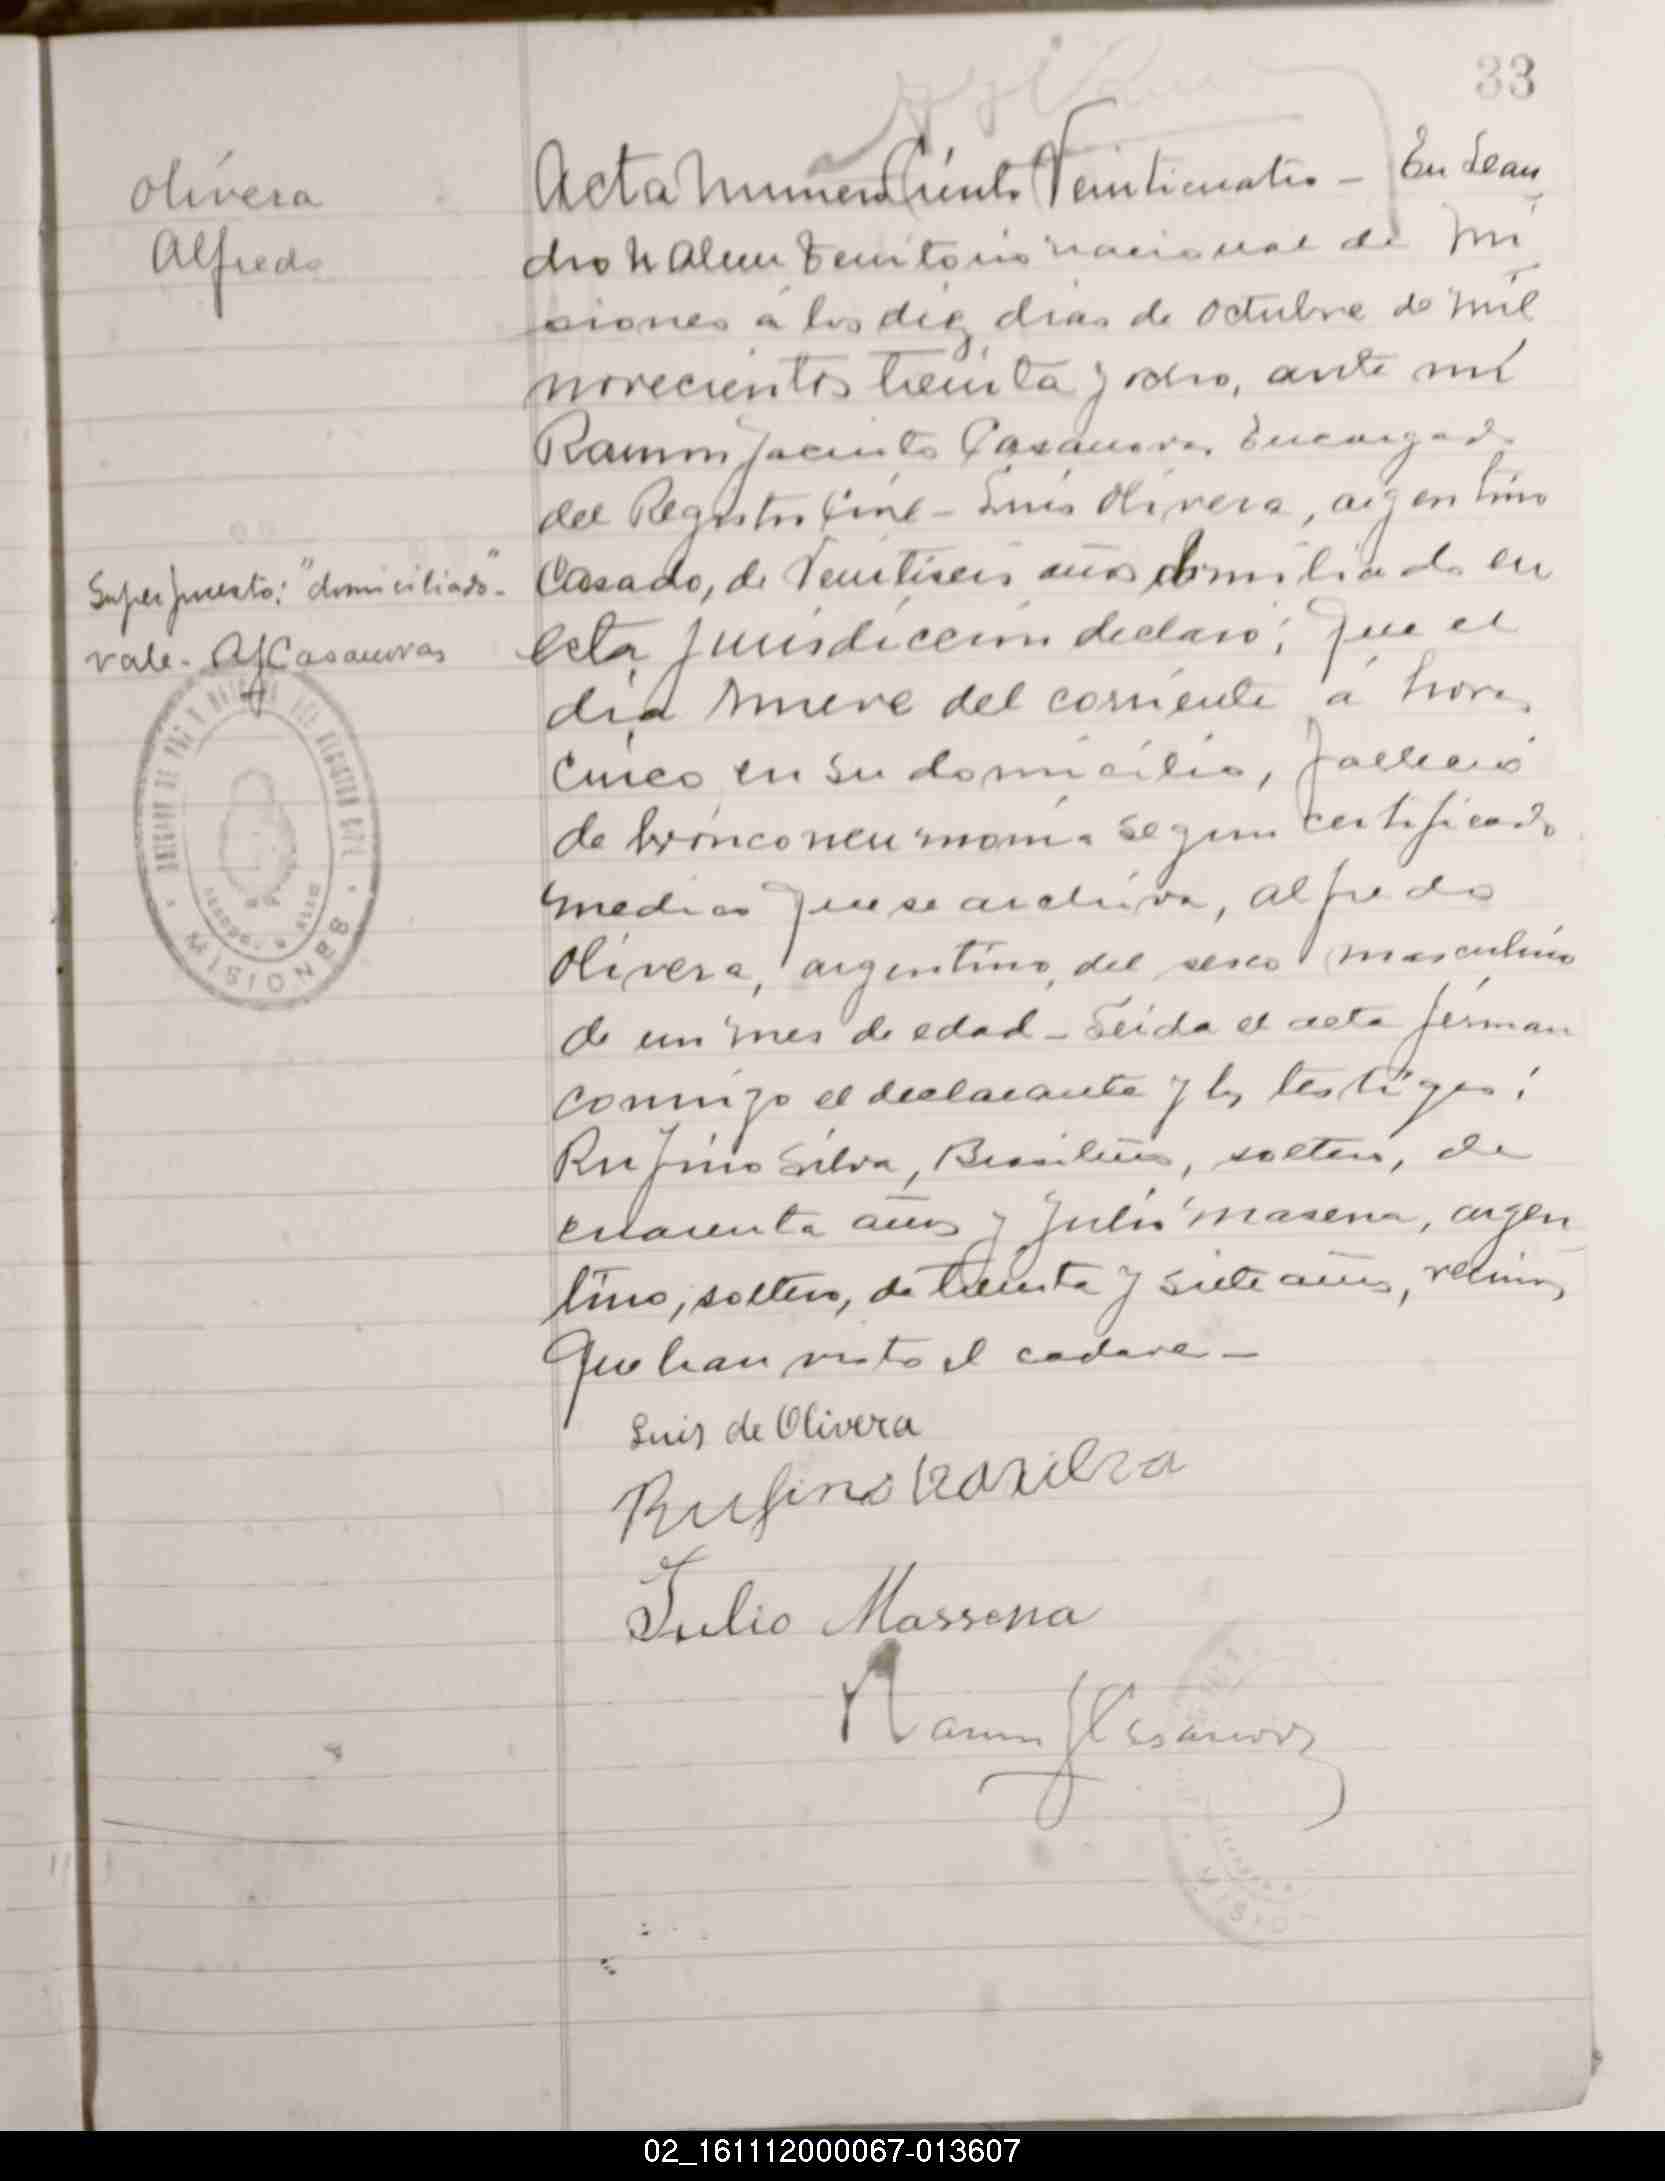 33
Olivera
Alfredo
Acta Numero Ciento Veinticuatro - En Lean
dro N Alem Territorio nacional de Mi
siones á los diez dias de octubre de mil
novecientos treinta y ocho, ante mi
Ramon Jacinto Casanovas Encargado
del Registro Civil - Luis Olivera, argentino
Casado, de Veintiseis años domiliado en
esta jurisdiccion declaró; que el
dia nueve del corriente á horas
cinco en su domicilio, fallecio
de bronconeumonia segun certificado
medico que se archiva, Alfredo
Olivera, argentino, del sexo masculino
de un mes de edad - Leida el acta firman
conmigo el declarante y los testigos:
Rufino Silva, Brasileño, soltero, de
cuarenta años y Julio Masena, argen
tino, soltero, de treinta y siete años, vecinos
que han visto el cadaver -
Superpuesto: "domiciliado" -
vale - RJCasanovas
REGISTRO CIVIL
MISIONES
Luis de Olivera
Rufino
Julio Massena
Ramon J Casanovas
MISIO
02_161112000067-013607